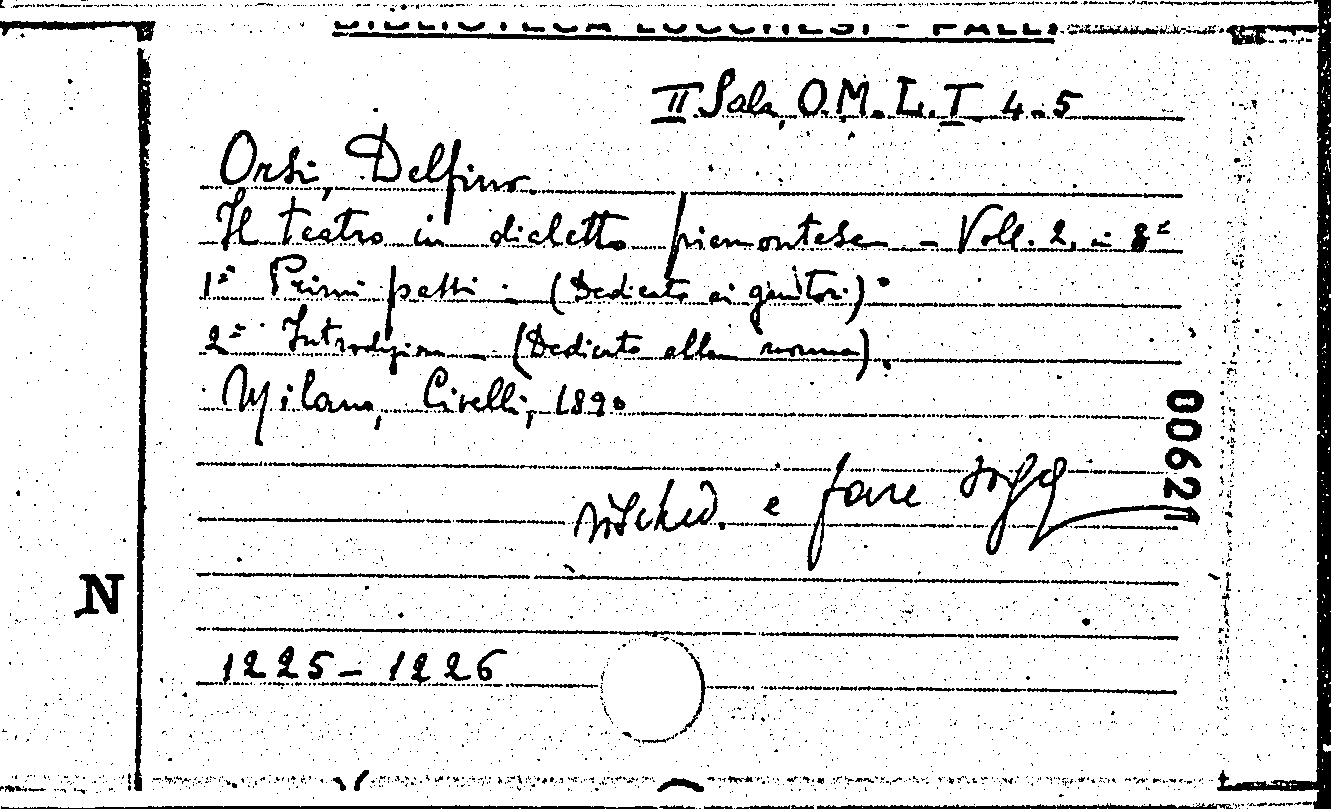 BIBLIOTECA LUCCHESI - PALLI
II Sala, O.M. L. I. 4.5
Orsi, Delfino.
Il teatro in dialetto piemontese - Voll. 2, in 8º
1º Primi passi - (Dedicato ai genitori).
2º Introduzione - (Dedicato alla nonna).
Milano, Civelli, 1890
00621
risched. e fare sogg
N
1225-1226